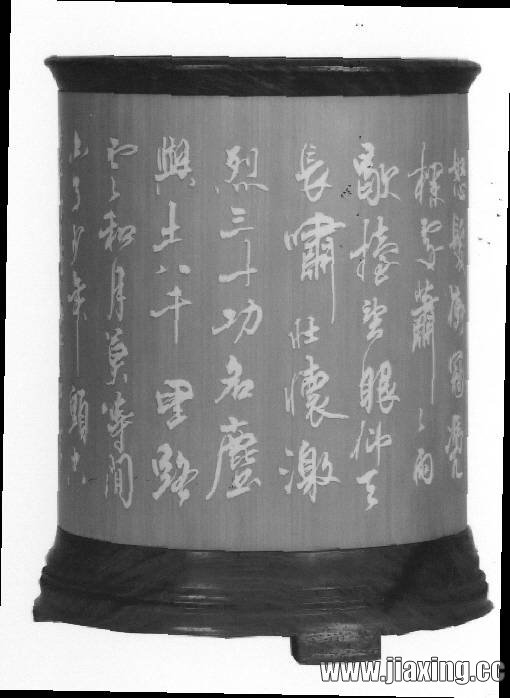 怒髮衝冠憑
欄處蕭々雨
歇擡望眼仰天
長嘯壯懷激
烈三十功名塵
與土八千里路
雲和月莫等閒
白了少年頭空
www.jiaxing.cc